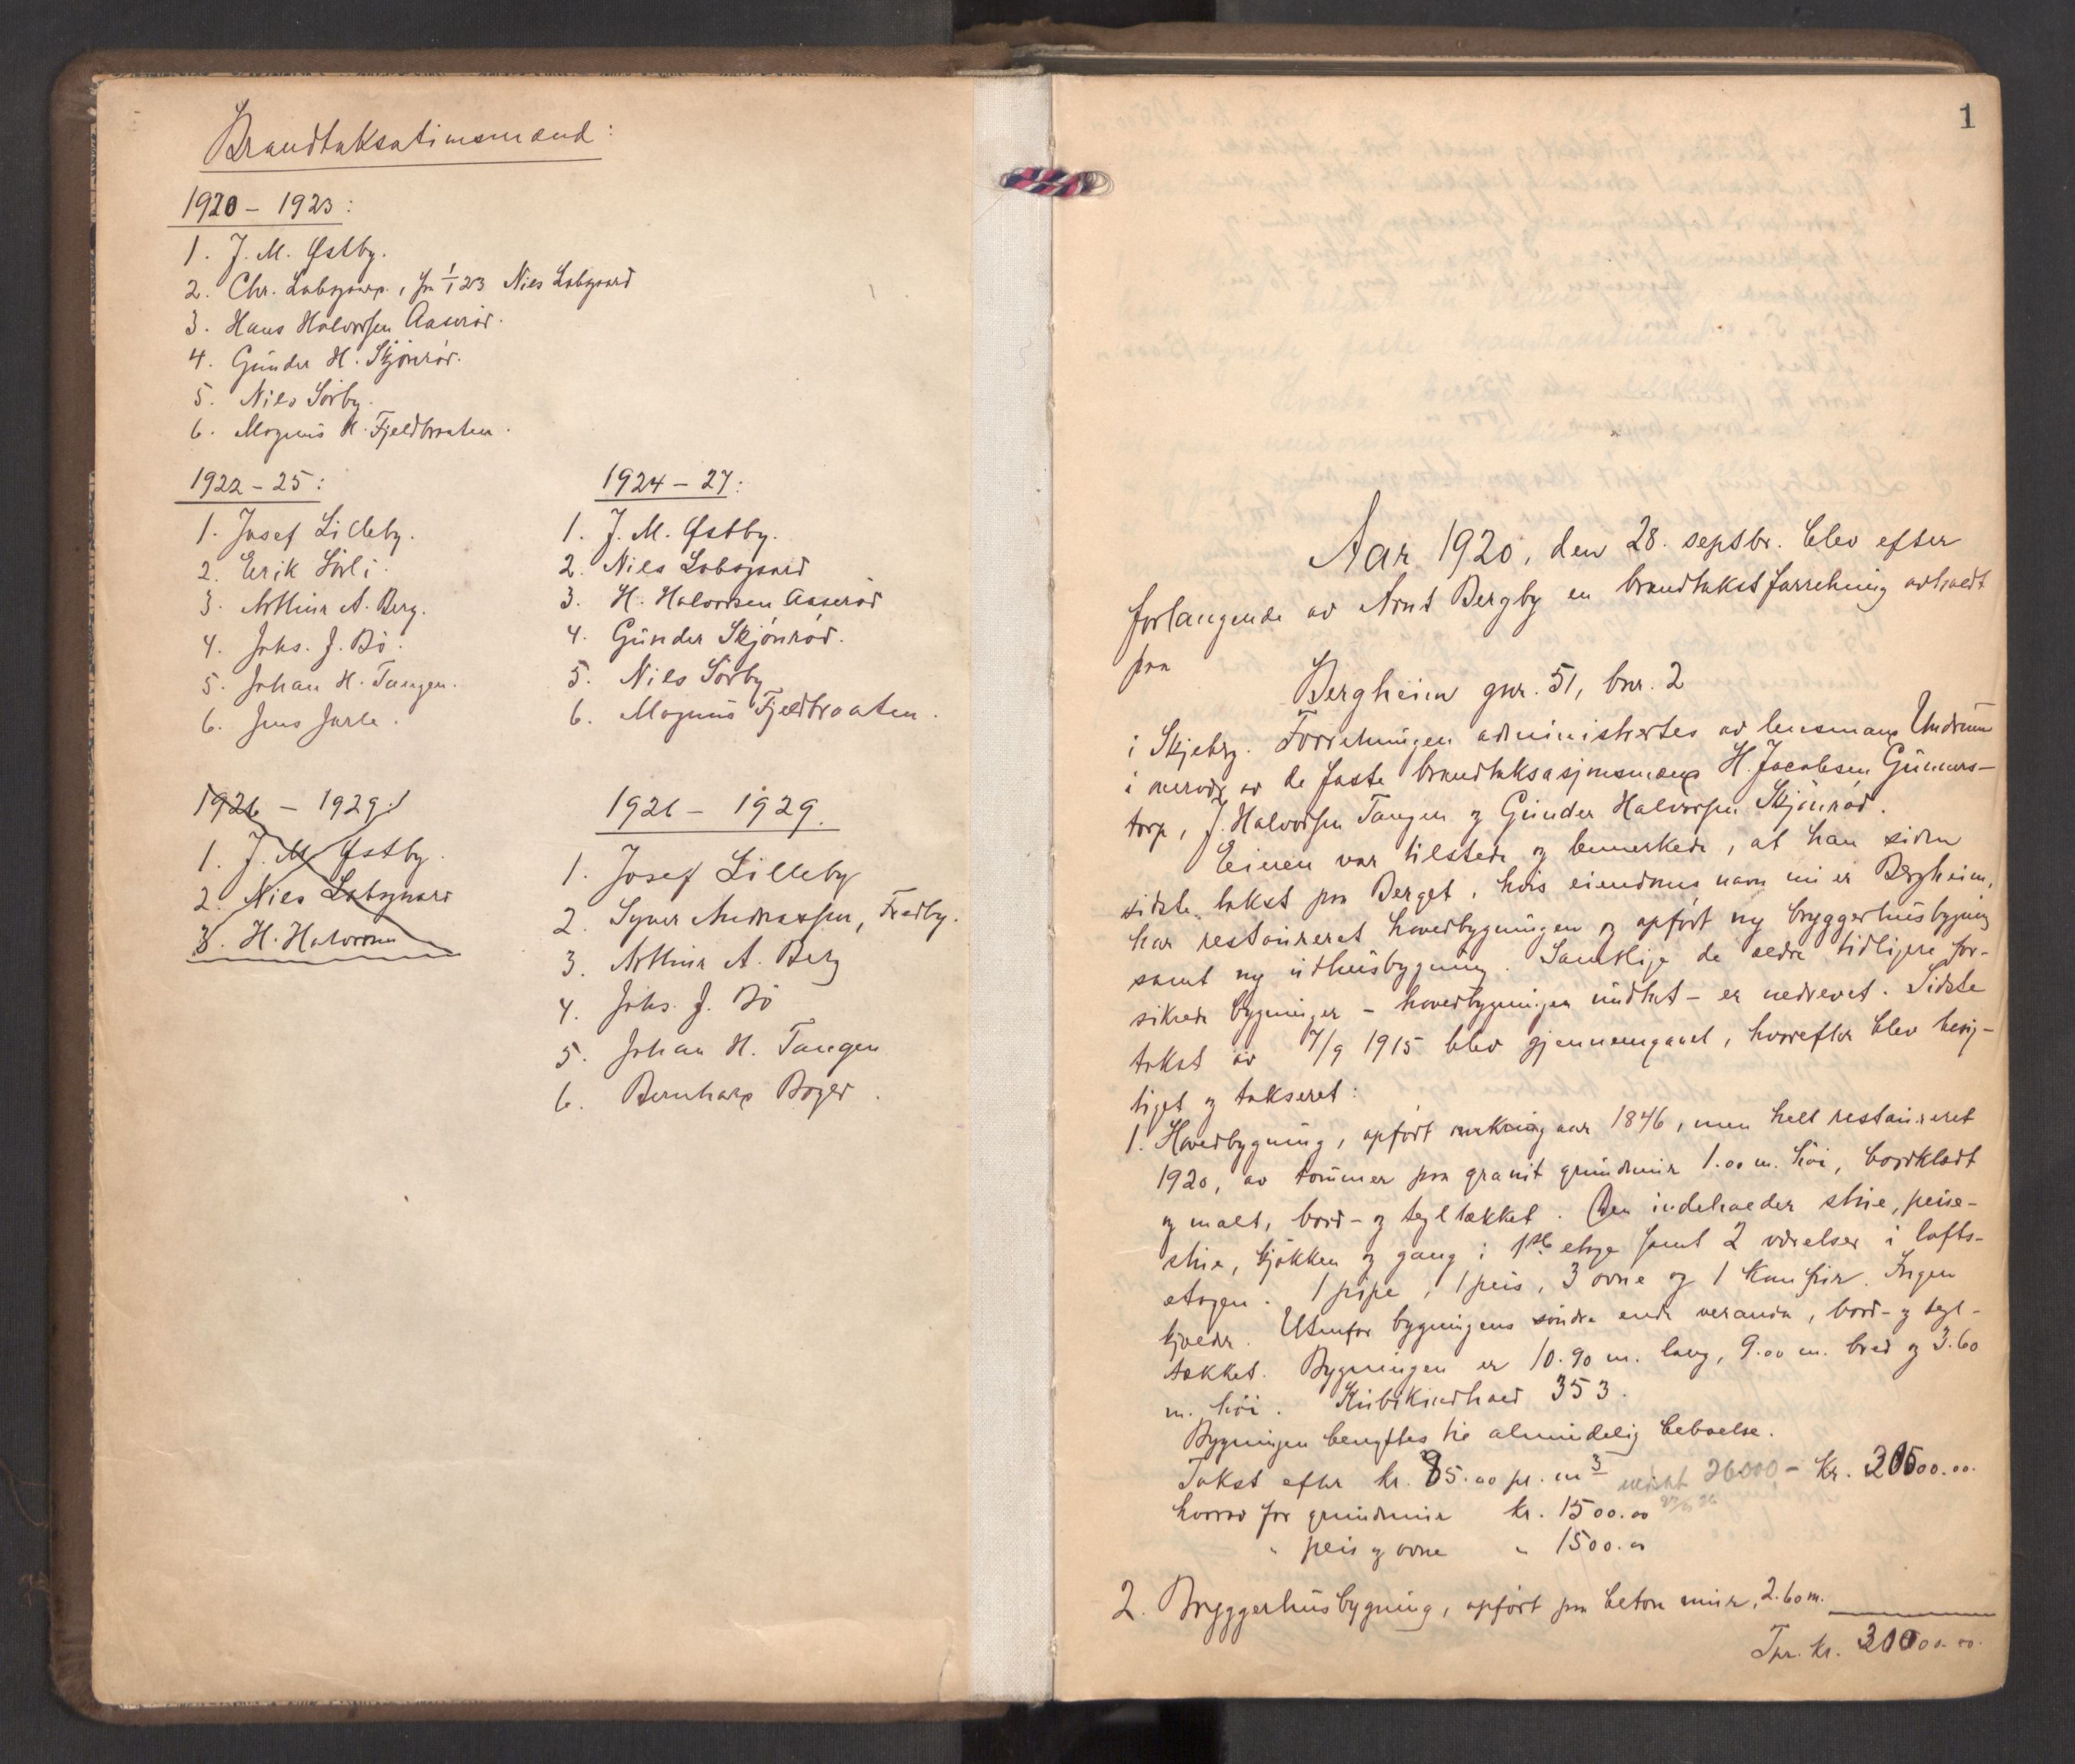 Brandtaksationsmænd:
1920 – 1923:
1. J. M. Østby.
2. Chr. Labogaard, fra 1/1 23 Nils Labogaard
3. Hans Halvorsen Aaserød.
4. Gunder H. Skjønrød.
5. Nils Sørby.
6. Magnus H. Fjeldbraaten.
1922 – 25:
1. Josef Lilleby.
2. Erik Sørli.
3. Arthur A. Berg.
4. Johs. J. Bø.
5. Johan H. Tangen.
6. Jens Jarle.
1924 – 27:
1. J. M. Østby.
2. Nils Labogaard
3. H. Halvorsen Aaserød
4. Gunder Skjønrød.
5. Nils Sørby
6. Magnus Fjeldbraaten.
1926 – 1929:
1. J. M. Østby.
2. Nils Labogaard
3. H. Halvorsen
1926 – 1929.
1. Josef Lilleby
2. Syver Andreassen, Fredby.
3. Arthur A. Berg
4. Johs. J. Bø
5. Johan H. Tangen
6. Bernhard Boger.
1
Aar 1920, den 28. septbr. blev efter
forlangende av Arnt Bergby en brandtakstforretning avholdt
paa
Bergheim gnr. 51, bnr. 2
i Skjeberg. Forretningen administrertes av lensmand Undrum
i nærvær av de faste brandtaksasjonsmænd H. Jacobsen Gunners-
torp, J. Halvorsen Tangen og Gunder Halvorsen Skjønrød.
Eieren var tilstede og bemerkede, at han siden
sidste takst paa Berget, hvis eiendoms navn nu er Bergheim,
har restaureret hovedbygningen og opført ny bryggerhusbygning
samt ny uthusbygning. Samtlige de ældre tidligere for-
sikrede bygninger – hovedbygningen undtat – er nedrevet. Sidste
takst av 7/9 1915 blev gjennemgaaet, hvorefter blev besig-
tiget og takseret:
1. Hovedbygning, opført omkring aar 1846, men helt restaureret
1920, av tømmer paa granit grundmur 1.00 m. høi, bordklædt
og malt, bord- og tegltækket. Den indeholder stue, peise-
stue, kjøkken og gang i 1ste etage samt 2 værelser i lofts-
etagen. 1 pipe, 1 peis, 3 ovne og 1 komfur. Ingen
kjelder. Utenfor bygningens søndre ende veranda, bord- og tegl-
tækket. Bygningen er 10.90 m. lang, 9.00 m. bred og 3.60
m. høi. Kubikindhold 353.
Bygningen benyttes til almindelig beboelse.
Takst efter kr. 85.00 pr. m3 26000,– kr. 30500.00.
hvorav for grundmur kr. 1500.00
" peis og ovne " 1500.00
2. Bryggerhusbygning, opført paa beton mur, 2.60 m.
Tpr. kr. 30000.00.